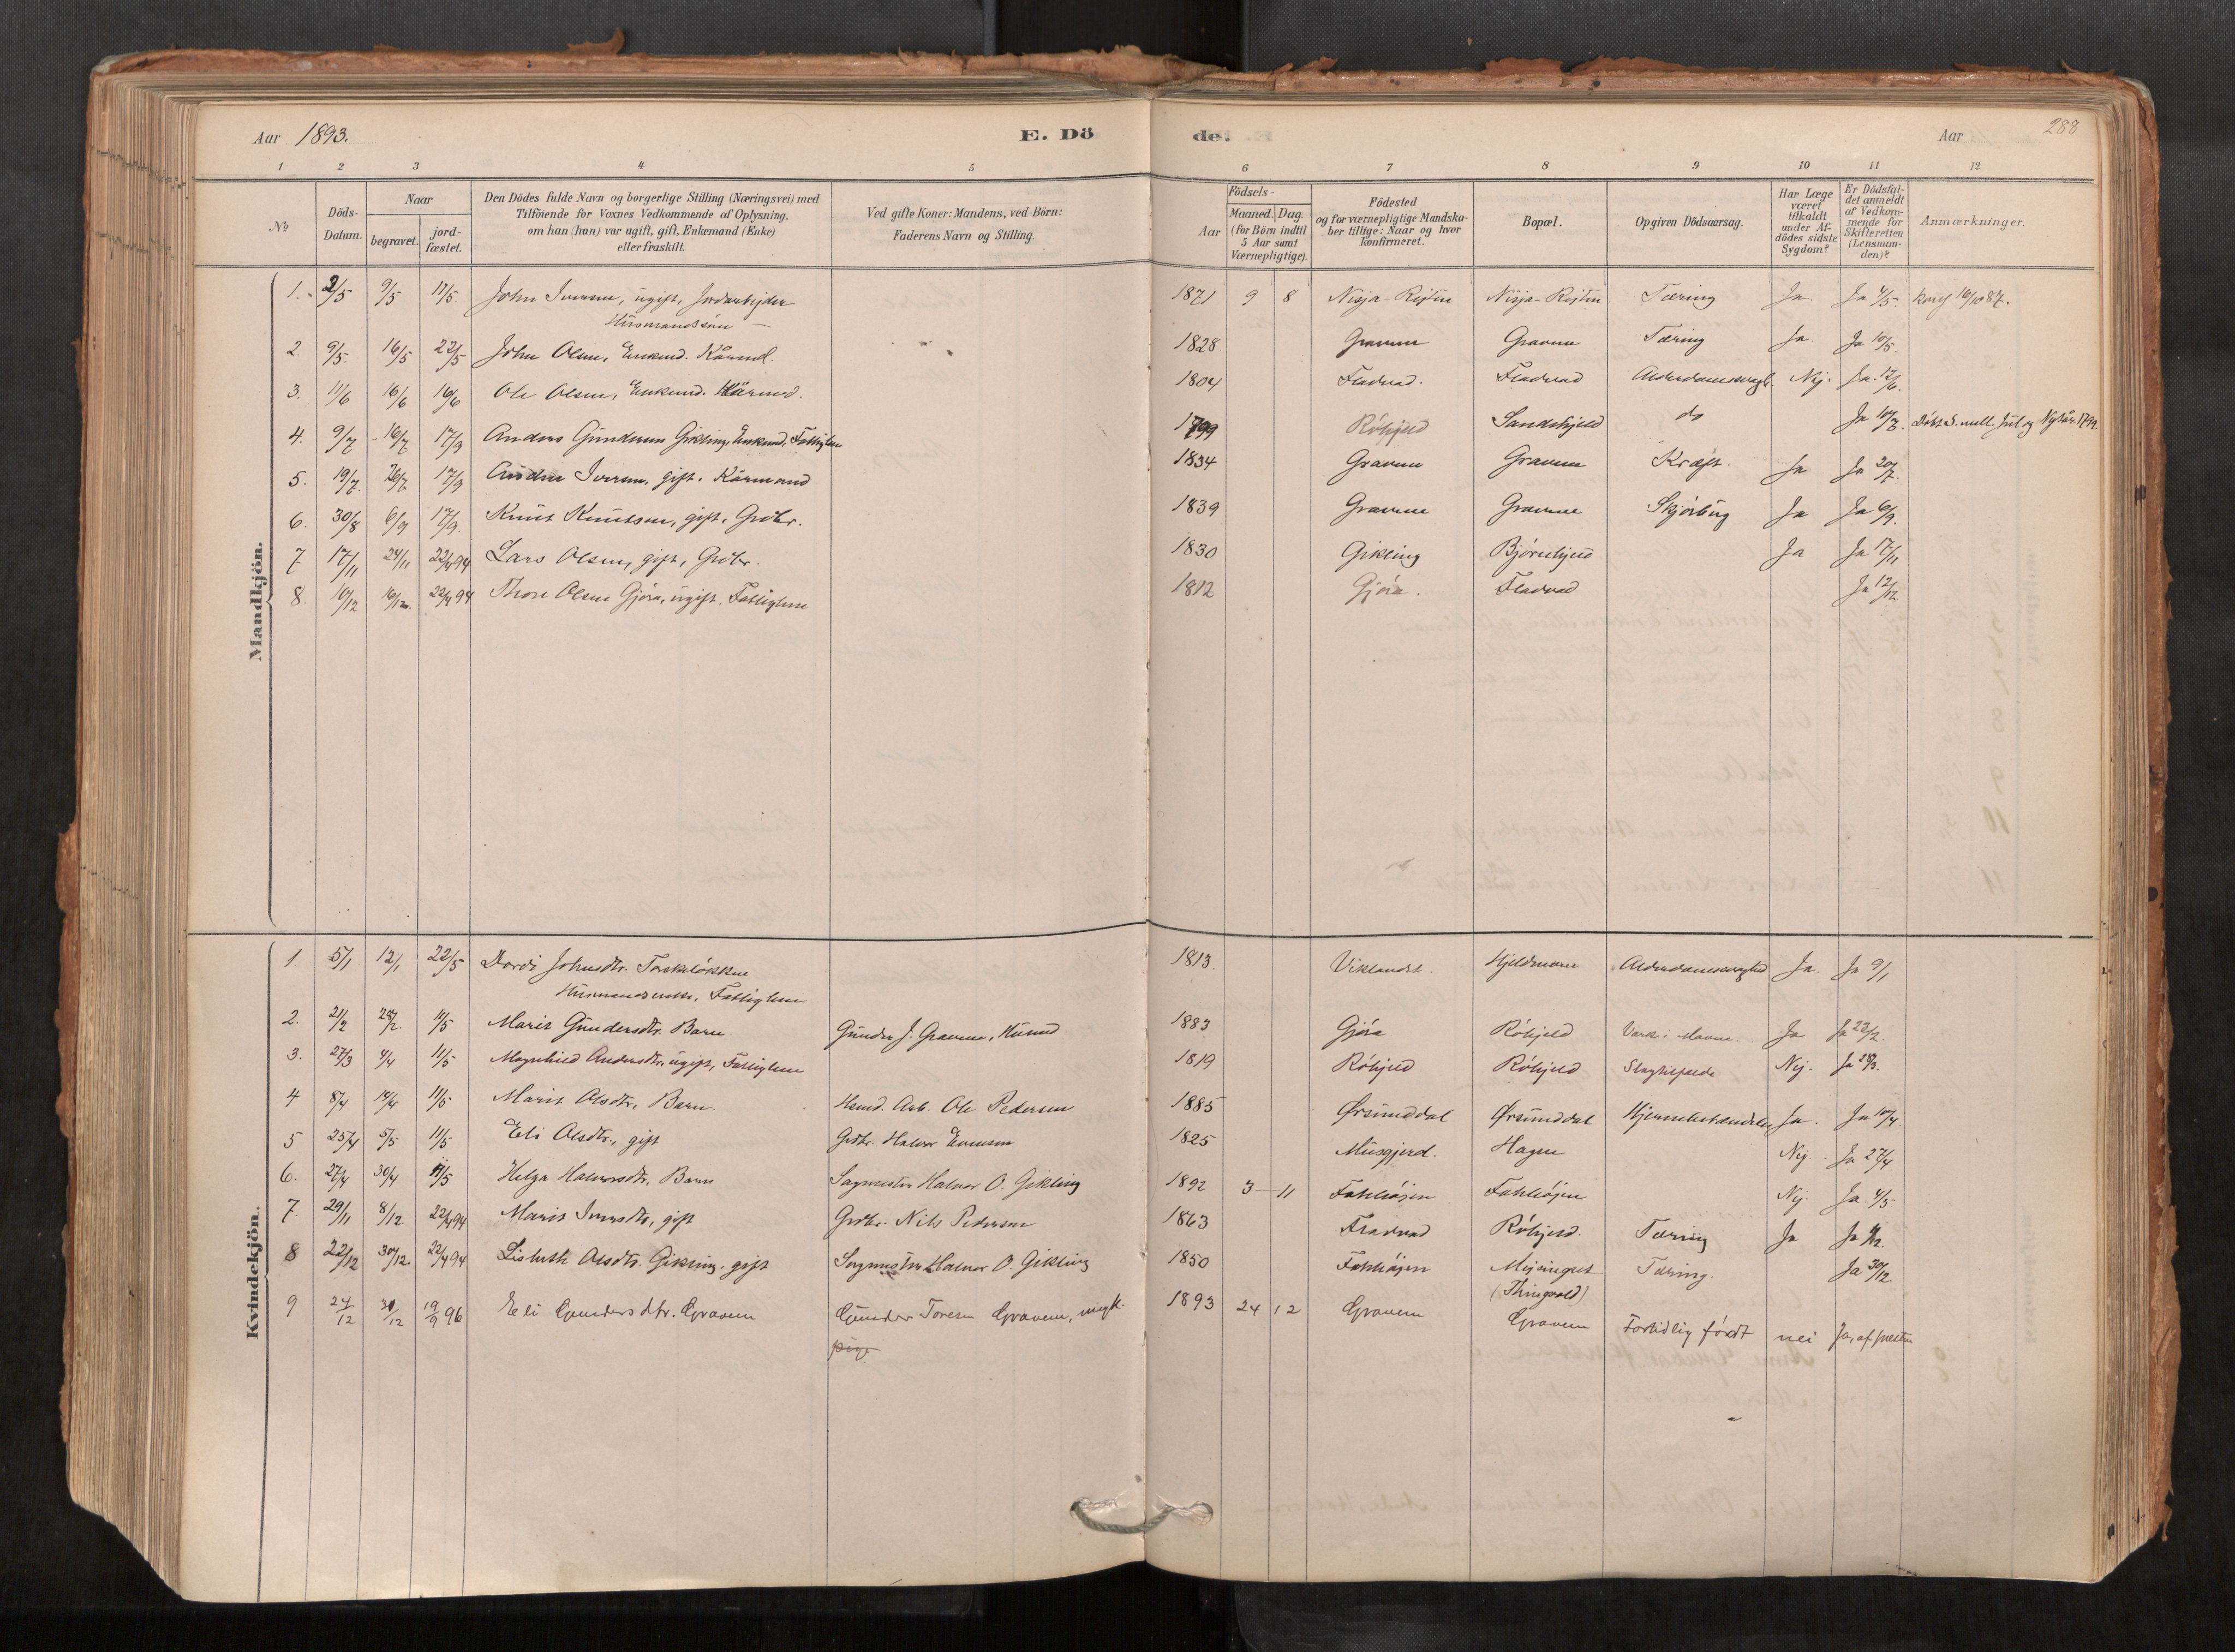 Aar 1893. E. Dö de. Aar 288
1 2 3 4 5 6 7 8 9 10 11 12
No
Döds-Datum.
Naar
begravet.
jord-fæstet.
Den Dödes fulde Navn og borgerlige Stilling (Næringsvei) med
Tilföiende for Voxnes Vedkommende af Oplysning,
om han (hun) var ugift, gift, Enkemand (Enke)
eller fraskilt.
Ved gifte Koner: Mandens, ved Börn:
Faderens Navn og Stilling.
Födsels-
Aar
Maaned. Dag.
(for Börn indtil
5 Aar samt
Værnepligtige).
Födested
og for værnepligtige Mandska-
ber tillige: Naar og hvor
konfirmeret.
Bopæl.
Opgiven Dödsaarsag.
Har Læge
været
tilkaldt
under Af-
dödes sidste
Sygdom?
Er Dödsfal-
det anmeldt
af Vedkom-
mende for
Skifteretten
(Lensman-
den)?
Anmærkninger.
Mandkjön.
1. 2/5 9/5 17/5 John Iversen, ugift, Jordarbejder 1871 9 8 Tæring Ja. Ja 4/5. Konf 16/10 87.
Husmandssøn
2. 9/5 16/5 22/5 John Olsen, Enkemd. Kårmd. 1828 Gravem Gravem Tæring Ja. Ja 10/5.
3. 11/6 16/6 16/6 Ole Olsen, Enkemd. Kårmd. 1804 Fladvad. Fladvad Alderdomssvagh. Nej. Ja. 12/6.
4. 9/7 16/7 17/9 Anders Gundersen Gikling, Enkemd, Fattiglem 1799 Röhjeld Sandshjeld do Ja 10/7. Döbt S. mell. Jul og Nytår 1799.
5. 19/7. 26/7 17/9 Iversen, gift. Kårmand 1834 Gravem Gravem Kræft. Ja Ja 20/7.
6. 30/8 6/9 17/9. Knut Knutsen, gift, Grdbr. 1839 Gravem Gravem Skjörbug Ja Ja 6/9.
7 17/11 24/11 22/4 94 Lars Olsen, gift, Grdbr. 1830 Gikling Björnhjeld Ja Ja 17/11
8. 10/12 16/12. 22/4 94 Thore Olsen Gjöra, ugift, Fattiglem 1812 Gjöra. Fladvad Ja 12/12
Kvindekjön.
1. 5/1 12/1 22/5 Dordi Johnsdtr. Torskeløkken 1813. Viklandet. Hjeldmoen Alderdomssvaghed Ja. Ja 9/1
Husmandsenke, Fattiglem
2. 21/2 28/2. 11/5 Marit Gundersdtr. Barn Gunder J. Gravem, Husmd 1883 Gjöra Röhjeld Værk i Maven. Ja Ja 22/2.
3. 27/3 4/4 11/5 Magnhild Andersdtr. ugift, Fattiglem 1819 Röhjeld Röhjeld Slagtilfælde Nej. Ja 28/3.
4 8/4 14/4 11/5 Marit Olsdtr, Barn. Husmd. Arb. Ole Pedersen 1885 Ørsunddal Ørsunddal Hjernebetændelse Ja. Ja 10/4.
5 25/4 5/5 11/5 Eli Olsdtr., gift Grdbr. Halvor Evensen 1825 Musgjerd. Hagen Nej. Ja 27/4.
6. 27/4 30/4 11/5 Helga Halvorsdtr. Barn Sagmester Halvor O. Gikling 1892 3 11 Fahlhöjen Fahlhöjen Nej. Ja. 4/5.
7. 29/11 8/12 22/4 94 Marit Iversdtr, gift Grdbr. Nils Pedersen 1863 Fladvad Röhjeld. Tæring Ja
8 22/12 30/12. 22/4 94 Lisbeth Olsdtr. Gikling. gift Sagmester Halvor O. Gikling 1850 Fahlhöjen Mejsingset Tæring. Ja 30/12.
(Thingvold)
9 24/12 31/12 19/9 96 Eli Gundersdtr. Gravem Gunder Toresen Gravem, ungk. 1893 24 12 Gravem Gravem Fortidlig födt nei Ja, af præsten
pige